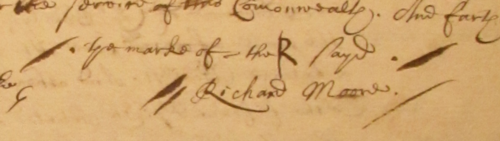 the service of this Comonwealth. And farth
ye marke of - the R sayd
Richard Moore.